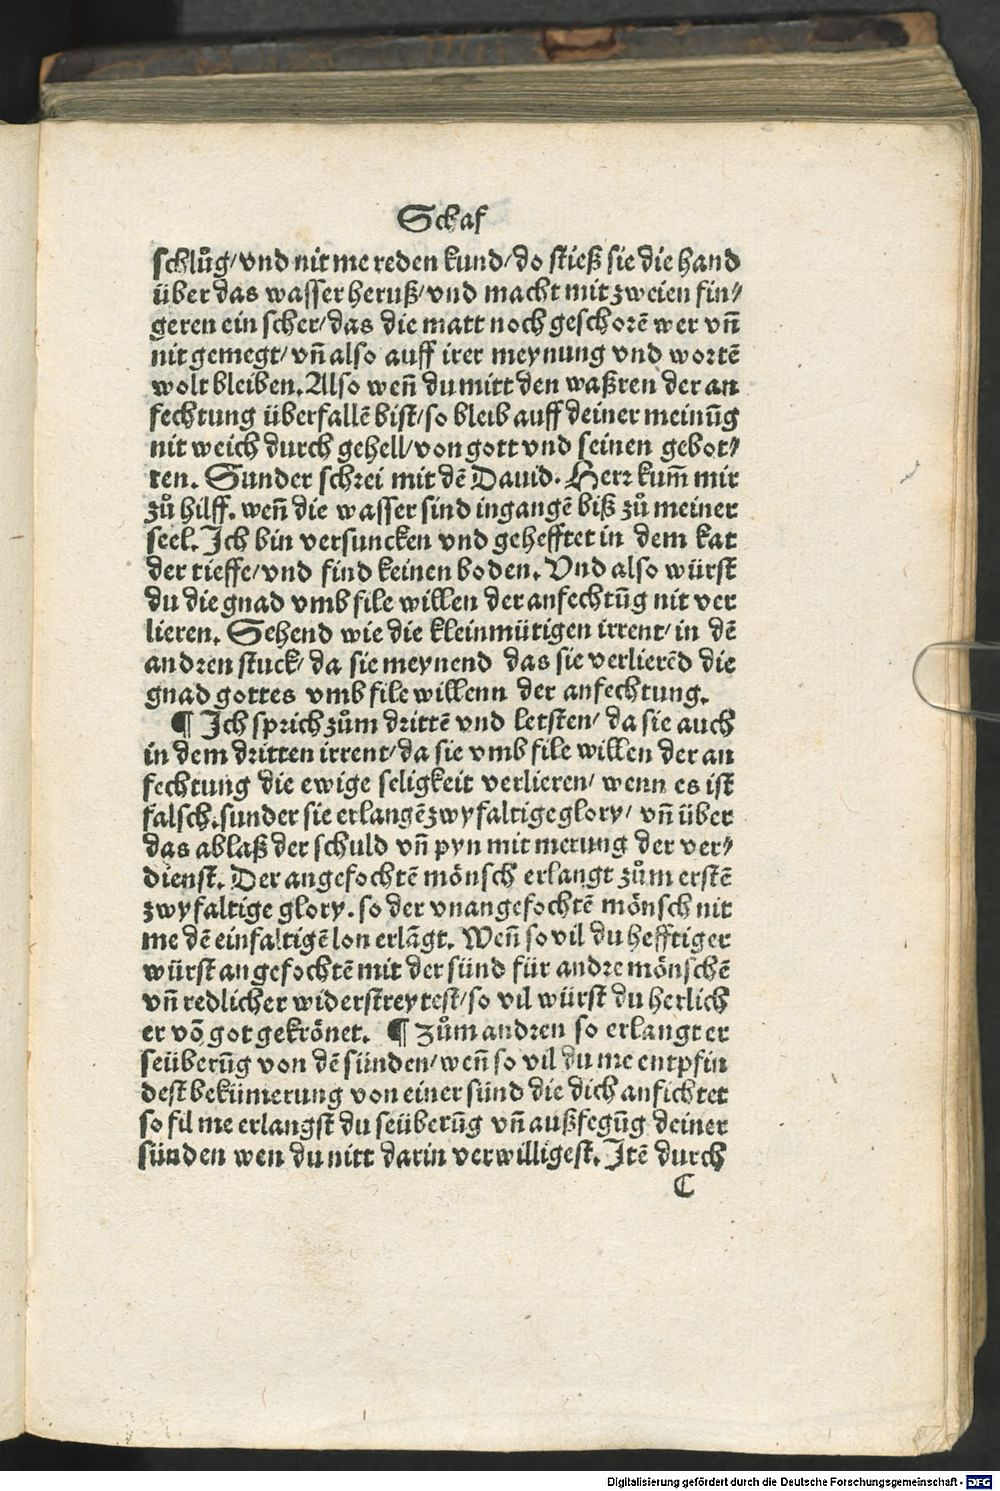 Schaf
schlůg/vnd nit me reden kund/do stieß sie die hand
über das wasser heruß/vnd macht mit zweien fin⸗
geren ein scher/das die matt noch geschorē wer vn̄
nit gemegt/vn̄ also auff irer meynung vnd wortē
wolt bleiben. Also wen̄ du mitt den waßren der an
fechtung überfallē bist/so bleib auff deiner meinūg
nit weich durch gehell/von gott vnd seinen gebot⸗
ten. Sunder schrei mit dē Dauid. Herr kum̄ mir
zů hilff. wen̄ die wasser sind ingangē biß zů meiner
seel. Ich bin versuncken vnd gehefftet in dem kat
der tieffe/vnd find keinen boden. Vnd also würst
du die gnad vmb file willen der anfechtūg nit ver
lieren. Sehend wie die kleinmütigen irrent/in dē
andren stuck/da sie meynend das sie verlierēd die
gnad gottes vmb file willenn der anfechtung.
¶ Ich sprich zům drittē vnd letsten/da sie auch
in dem dritten irrent/da sie vmb file willen der an
fechtung die ewige seligkeit verlieren/wenn es ist
falsch.sunder sie erlangē zwyfaltige glory/vn̄ über
das ablaß der schuld vn̄ pyn mit merung der ver⸗
dienst. Der angefochtē mönsch erlangt zům erstē
zwyfaltige glory. so der vnangefochtē mönsch nit
me dē einfaltigē lon erlāgt. Wen̄ so vil du hefftiger
würst angefochtē mit der sünd für andre mönschē
vn̄ redlicher widerstreytest/so vil würst du herlich
er vō got gekrönet. ¶ Zům andren so erlangt er
seüberūg von dē sünden/wen̄ so vil du me entpfin
dest bekümerung von einer sünd die dich anfichtet
so fil me erlangst du seüberūg vn̄ außfegūg deiner
sünden wen du nitt darin verwilligest. Itē durch
C
Digitalisierung gefördert durch die Deutsche Forschungsgemeinschaft - DFG